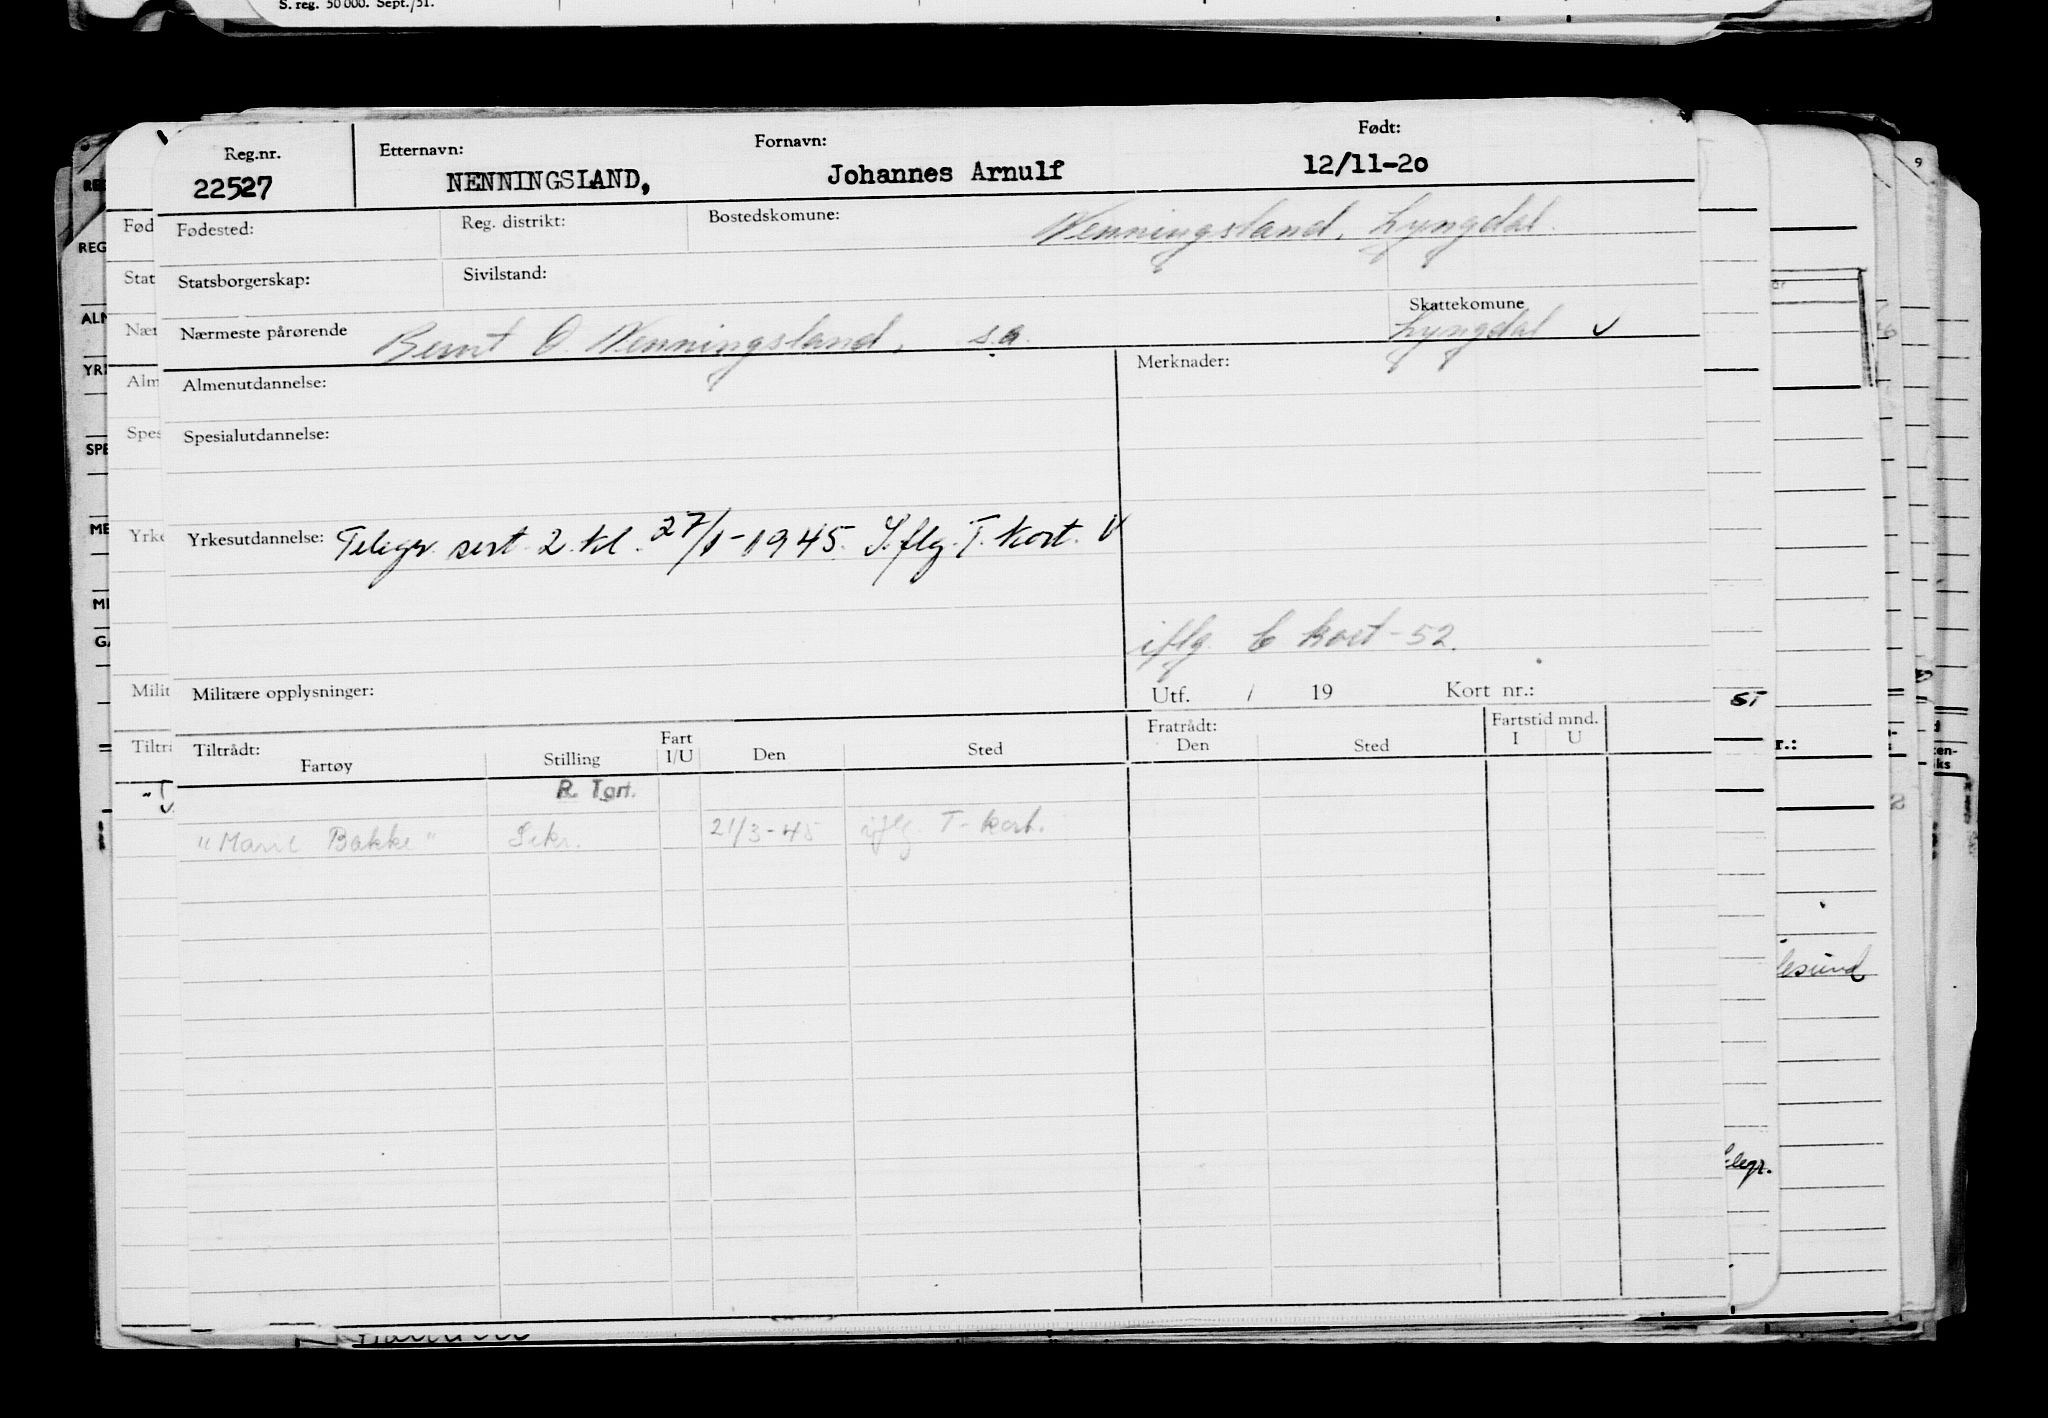 S. reg. 50 000. Sept./51.
Reg.nr. Etternavn: Fornavn: Født:
22527 NENNINGSLAND, Johannes Arnulf 12/11-20
Fødested: Reg. distrikt: Bostedskomune: Nenningsland, Lyngdal.
Statsborgerskap: Sivilstand:
Nærmeste pårørende Bernt O. Nenningsland, s.a. Skattekomune Lyngdal
Almenutdannelse: Merknader:
Spesialutdannelse:
Yrkesutdannelse: Telegr. sert. 2. kl. 27/1-1945. I.flg. T. Kort.
iflg. kort-52.
Militære opplysninger: Utf. / 19 Kort nr.:
Tiltrådt: Fratrådt: Fartstid mnd.
Fartøy Stilling Fart I/U Den Sted Den Sted I U
"Marit Bakke" 21/3-45 iflg. T-kort.
lesund
elegr.